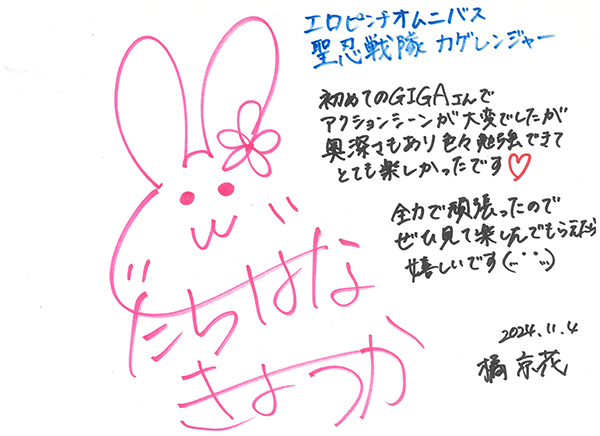 エロピンチオムニバス
聖忍戦隊 カゲレンジャー
初めてのGIGAさんで
アクションシーンが大変でしたが
奥深さもあり色々勉強できて
とても楽しかったです♡
全力で頑張ったので
ぜひ見て楽しんでもらえたら
嬉しいです(...¨...)
たちはな
きょうか
2024.11.4
橘 京花